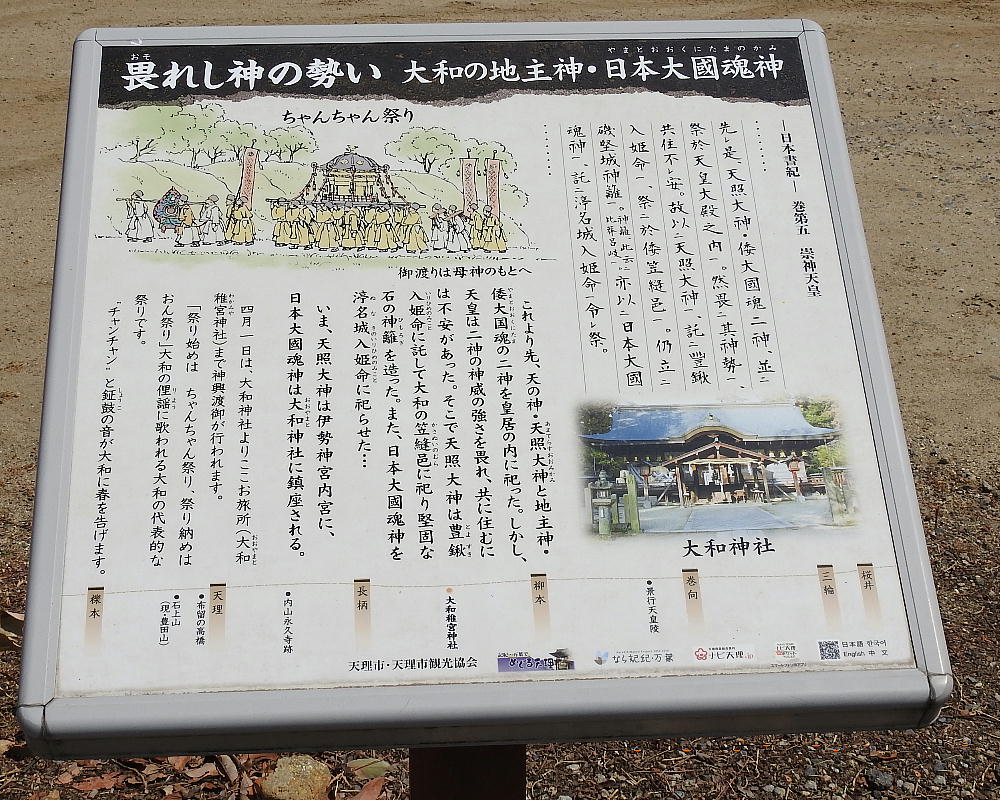 畏れし神の勢い 大和の地主神・日本大國魂神
おそ
やまとおおくにたまのかみ
ちゃんちゃん祭り
御渡りは母神のもとへ
―日本書紀― 巻第五 崇神天皇
・・・・・
先レ是、天照大神・倭大國魂二神、並二
祭於天皇大殿之內一。然畏二其神勢一、
共住不レ安。故以二天照大神一、託二豐鍬
入姬命一、祭二於倭笠縫邑一。仍立二
磯堅城神籬一。神籬、此云二比莽呂岐一 亦以二日本大國
魂神一、託二渟名城入姬命一令レ祭。
・・・・・
これより先、天の神・天照大神と地主神・
倭大国魂の二神を皇居の内に祀った。しかし、
天皇は二神の神威の強さを畏れ、共に住むに
は不安があった。そこで天照大神は豊鍬
入姫命に託して大和の笠縫邑に祀り堅固な
石の神籬を造った。また、日本大國魂神を
渟名城入姫命に祀らせた…
いま、天照大神は伊勢神宮内宮に、
日本大國魂神は大和神社に鎮座される。
四月一日は、大和神社よりここお旅所(大和
稚宮神社)まで神輿渡御が行われます。
「祭り始めは ちゃんちゃん祭り、祭り納めは
おん祭り」大和の俚謡に歌われる大和の代表的な
祭りです。
"チャンチャン"と鉦鼓の音が大和に春を告げます。
大和神社
桜井
三輪
巻向
●景行天皇陵
柳本
●大和稚宮神社
長柄
●内山永久寺跡
天理
●布留の高橋
●石上山
(現・豊田山)
櫟本
天理市・天理市観光協会
めぐる天理
なら記紀・万葉
ナビ天理.jp
日本語 한국어
English 中文